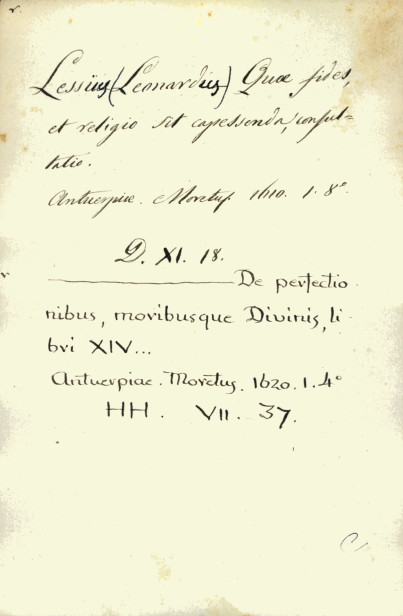 r.
Lessius (Leonardus) Quæ fides,
et religio sit capessenda, consul=
tatio.
Antuerpiæ. Moretus. 1610. 1. 8.º
D. XI. 18.
De perfectio
nibus, moribusque Divinis, li-
bri XIV...
Antuerpiae. Moretus. 1620. 1. 4º
HH. VII. 37.